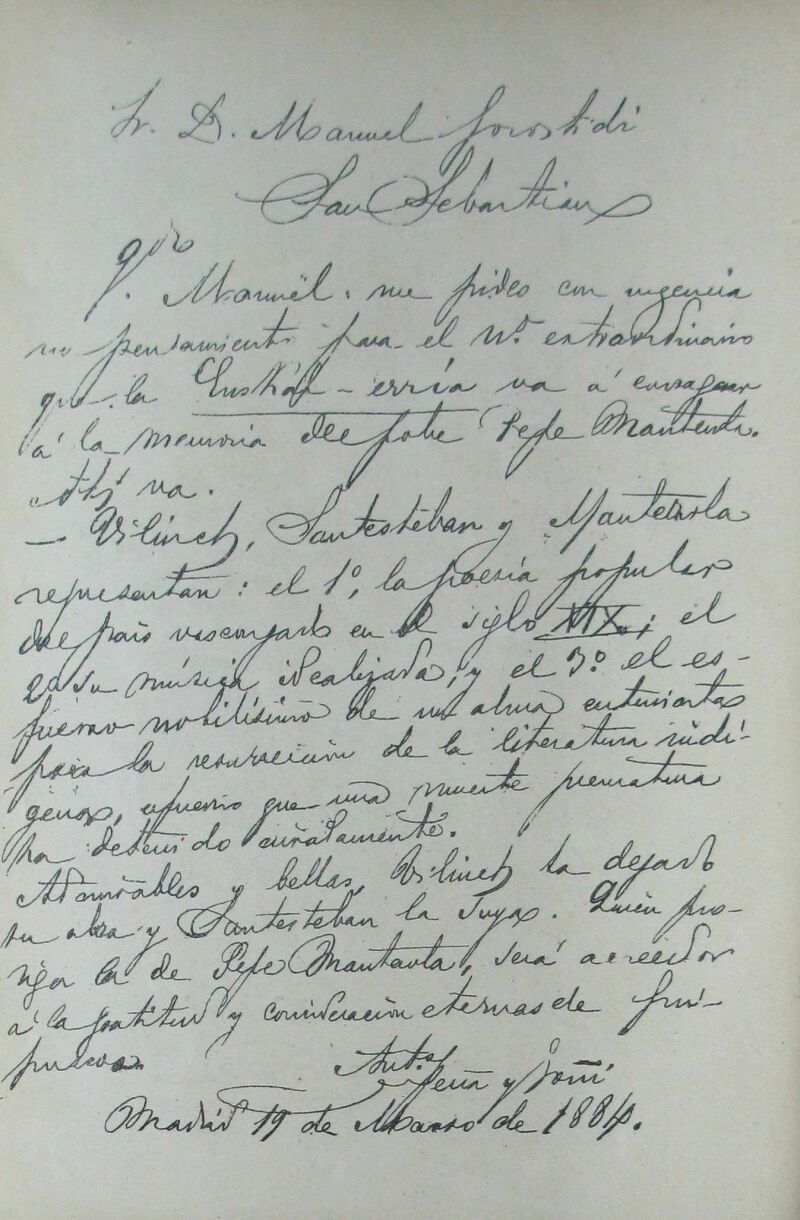 Sr. D. Manuel Gorostidi
San Sebastian
Qdo
Manuel: me pides con urgencia
un pensamiento para el No. extraordinario
que la Euskal-erría va á consagrar
á la memoria del pobre Pepe Manterola.
Ahí va.
— Vilinch, Santesteban y Manterola
representan: el 1o, la poesía popular
del país vascongado en el siglo XIX; el
2o su música idealizada, y el 3o el es-
fuerzo nobilísimo de un alma entusiasta
para la resurrección de la literatura indí-
gena, esfuerzo que una muerte prematura
ha detenido
Admirables y bellas, Vilinch ha dejado
su obra y Santesteban la suya. Quien pro-
siga la de Pepe Manterola, será acreedor
á la gratitud y consideración eternas de Gui-
púzcoa.
Anto. Peña y Goñi
Madrid 19 de Marzo de 1884.